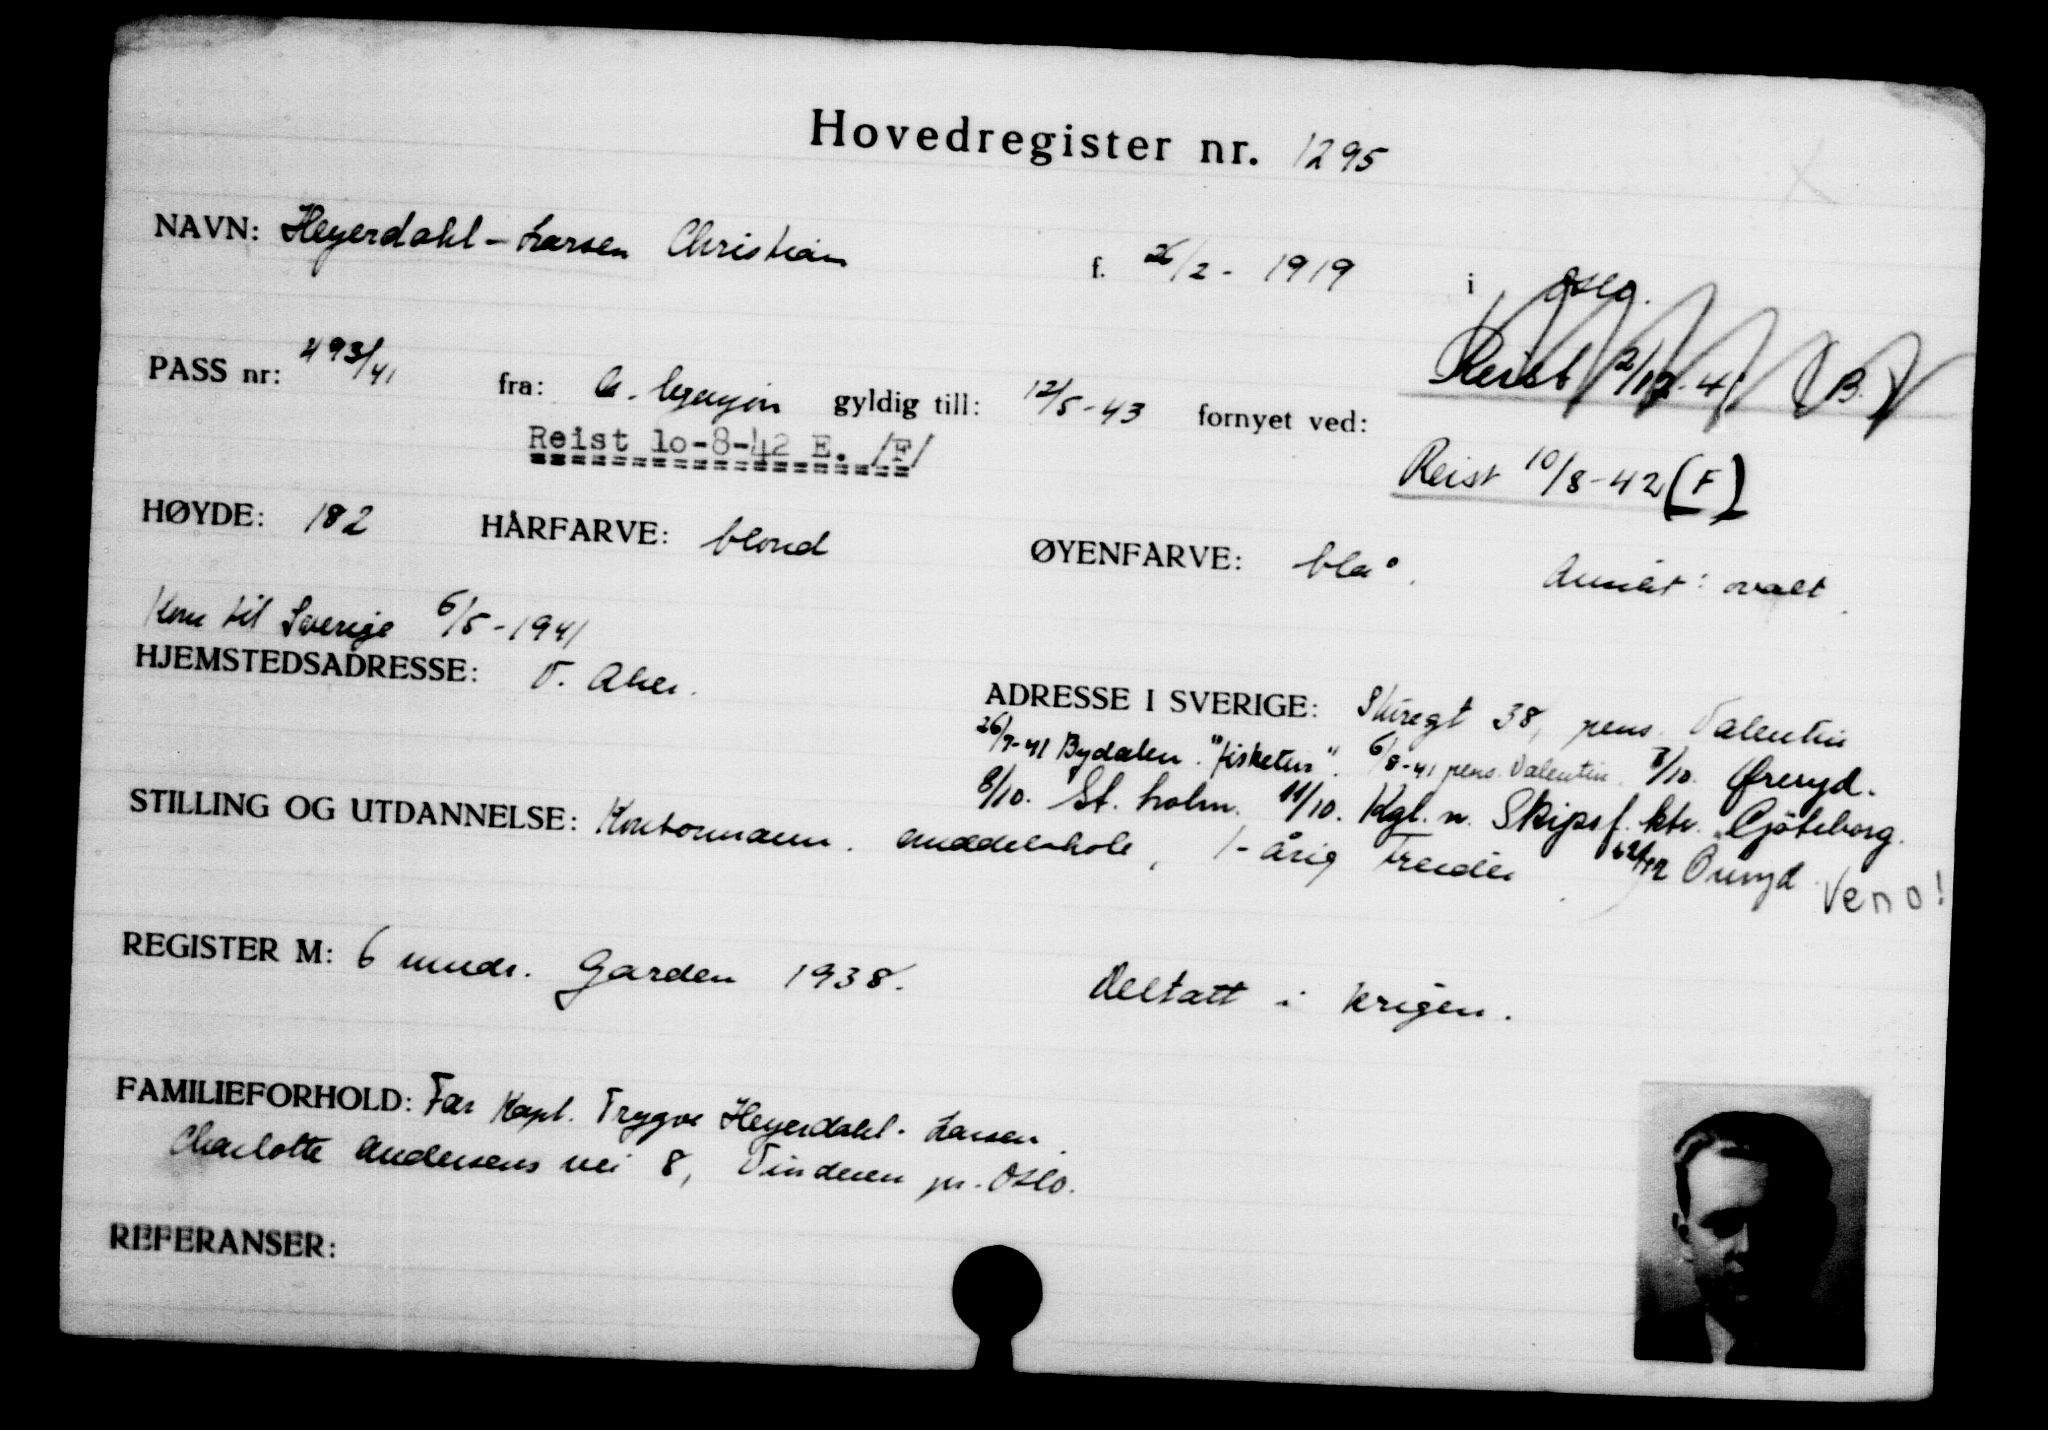 Hovedregister nr. 1295
NAVN: Heyerdahl-Larsen Christian f. 26/2 - 1919 i Oslo.
PASS nr: 493/41 fra: gyldig till: 12/5-43 fornyet ved: Reist 2/12-41 (B.)
Reist 10-8-42 E. /F/
Reist 10/8-42 (F)
HØYDE: 182 HÅRFARVE: blond ØYENFARVE: blå. Ansikt: ovalt.
Kom til Sverige 6/5-1941
HJEMSTEDSADRESSE: V. Aker.
ADRESSE I SVERIGE: 38, pens. Valentin
26/7-41 Bydalen. "fisketur". 6/8-41 pens. Valentin. 3/10. Øreryd.
8/10. St. holm. 11/10. Kgl. n. Skipsf. ktr. Gjøteborg.
Öreryd Veno!
STILLING OG UTDANNELSE: Kontormann. middelskole, 1-årig Treider
REGISTER M: 6 mndr. Garden 1938. Deltatt i krigen.
FAMILIEFORHOLD: Far Kapt. Trygve Heyerdahl-Larsen.
Charlotte Andersens vei 8, Vinderen pr. Oslo.
REFERANSER: